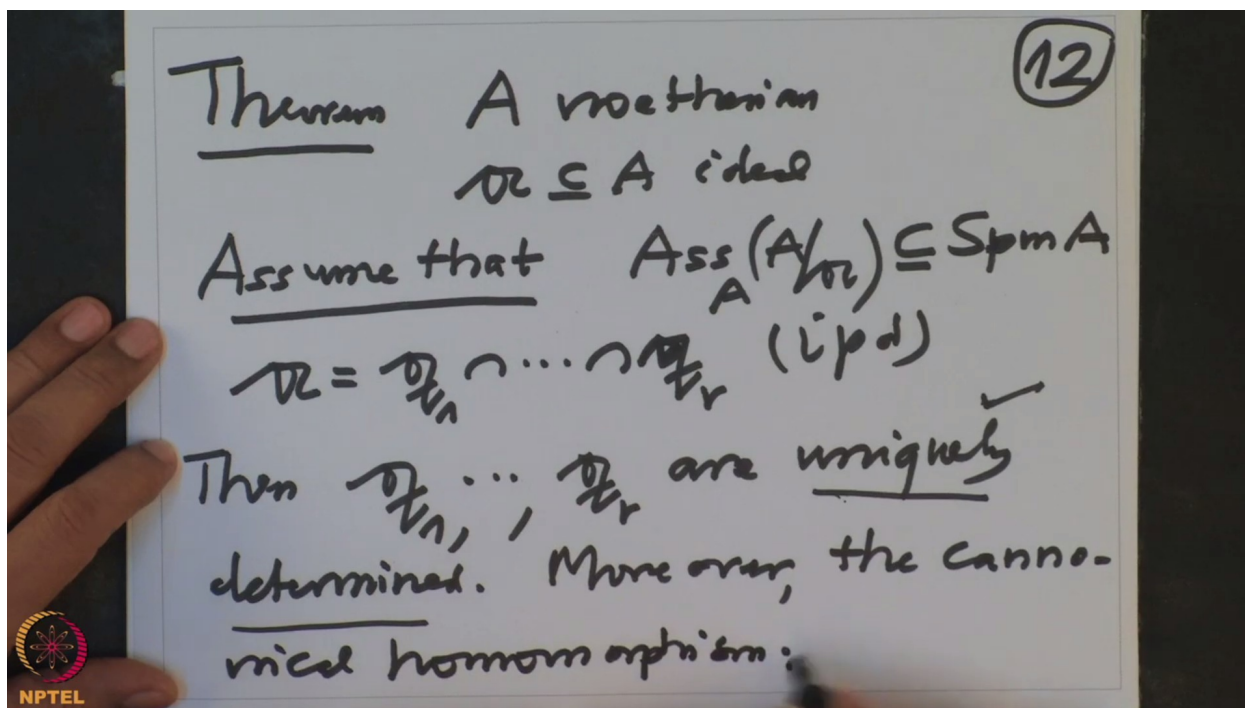 12
Theorem A noetherian
𝔞 ⊆ A ideal
Assume that Ass_A (A/𝔞) ⊆ Spm A
𝔞 = 𝔮_1 ∩ ⋯ ∩ 𝔮_r (ipd)
Then 𝔮_1, ⋯, 𝔮_r are uniquely ✓
determined. Moreover, the canno-
nical homomorphism:
NPTEL